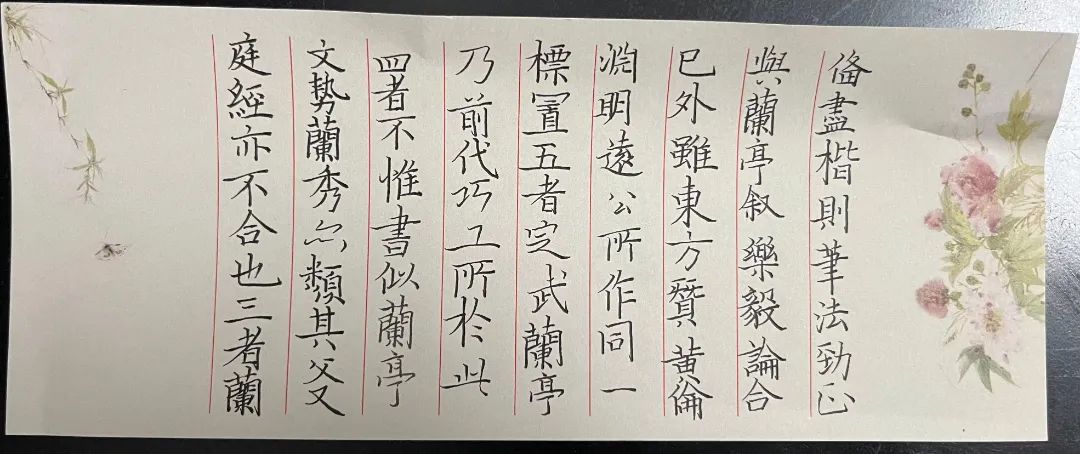 俻盡楷則筆法勁正
與蘭亭叙樂毅論合
已外雖東方贊黄倫
淵明遠公所作同一
標置五者定武蘭亭
乃前代巧工所於此
四者不惟書似蘭亭
文勢蘭秀亦類其父又
庭經亦不合也三者蘭